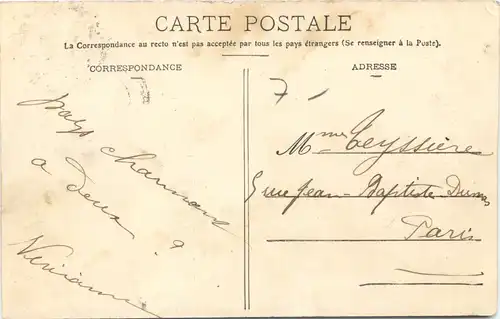 CARTE POSTALE
La Correspondance au recto n'est pas acceptée par tous les pays étrangers (Se renseigner à la Poste).
CORRESPONDANCE
ADRESSE
7
pays charmant
a deux
Mme Teyssière
5 rue Jean-Baptiste Dumas
Paris